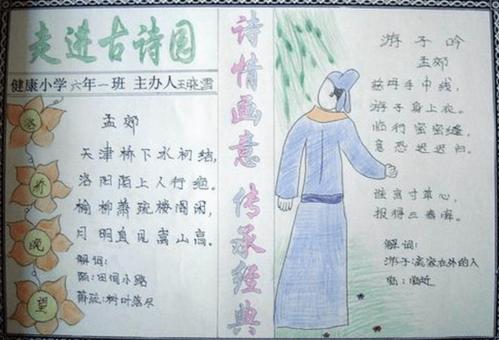 走进古诗园
健康小学六年一班 主办人王晓雪
洛
桥
晚
望
孟郊
天津桥下水初结，
洛阳陌上人行绝。
榆柳萧疏楼阁闲，
月明直见嵩山高。
解词：
陌：田间小路
萧疏：树叶落尽
诗情画意 传承经典
游子吟
孟郊
慈母手中线，
游子身上衣。
临行密密缝，
意恐迟迟归。
谁言寸草心，
报得三春晖。
解词：
游子：离家在外的人
临：临近